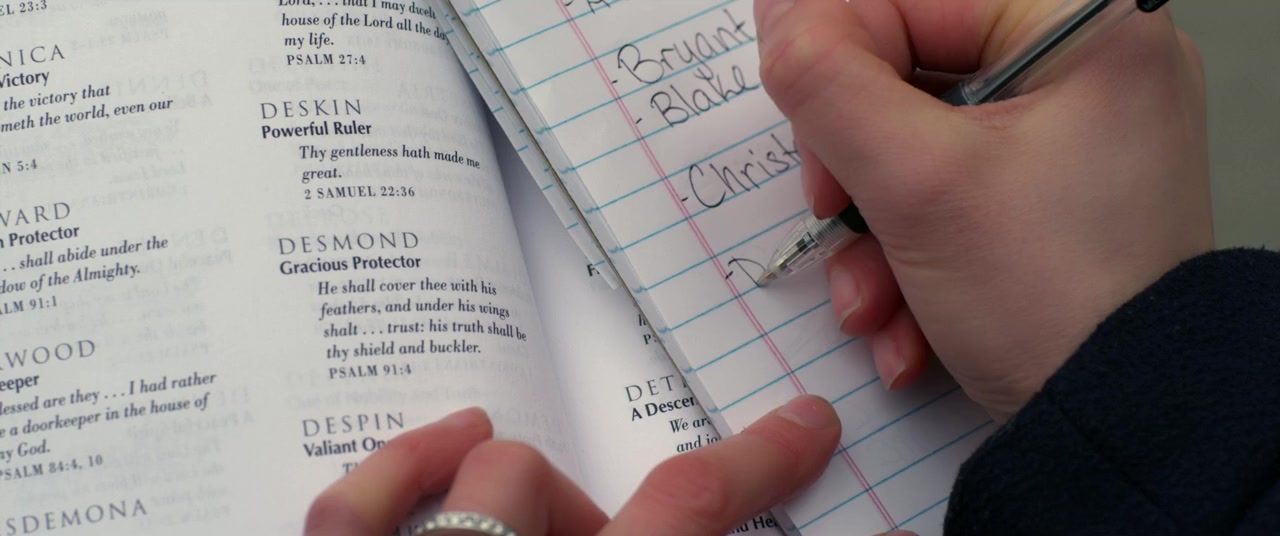 23:3
NICA
Victory
the victory that
meth the world, even our
N 5:4
WARD
Protector
. . . shall abide under the
dow of the Almighty.
ALM 91:1
WOOD
eeper
lessed are they . . . I had rather
e a doorkeeper in the house of
ny God.
PSALM 84:4, 10
SDEMONA
Lord, . . . that I may dwell
house of the Lord all the da
my life.
PSALM 27:4
DESKIN
Powerful Ruler
Thy gentleness hath made me
great.
2 SAMUEL 22:36
DESMOND
Gracious Protector
He shall cover thee with his
feathers, and under his wings
shalt . . . trust: his truth shall be
thy shield and buckler.
PSALM 91:4
DESPIN
Valiant On
DET
A Descen
We ar
and jo
- Bryant
- Blake
- Christ
- D